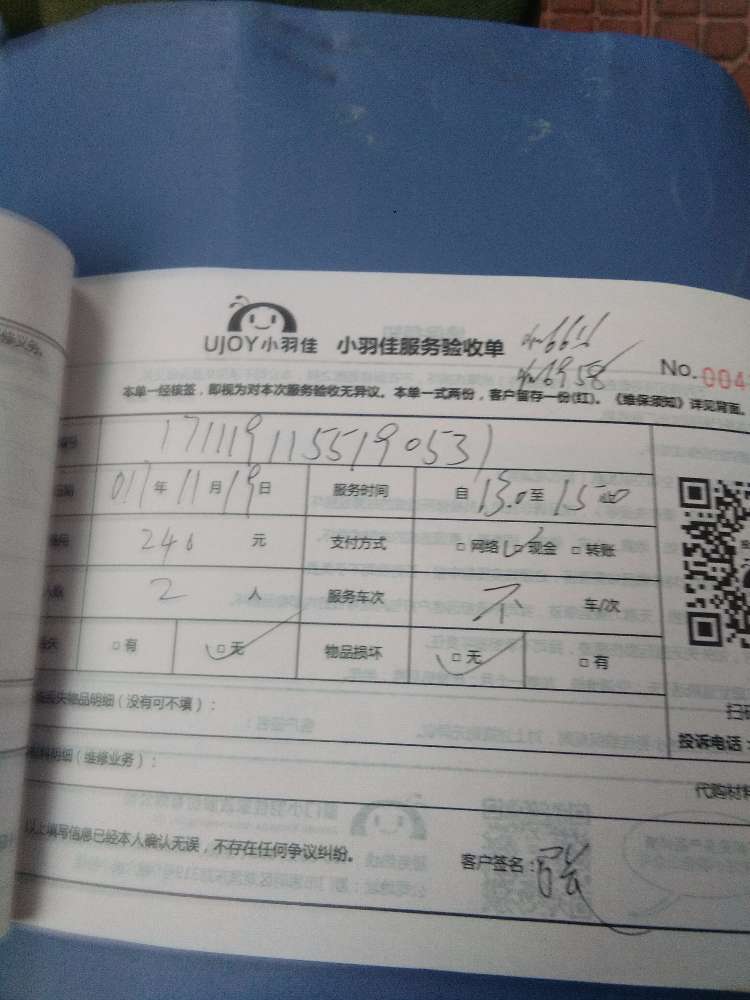 UJOY小羽佳 小羽佳服务验收单
6958
No. 004
本单一经核签，即视为对本次服务验收无异议。本单一式两份，客户留存一份(红)。《维保须知》详见背面。
1711191155190531
017年11月19日 服务时间 自13.0至15
246元 支付方式 □网络 □现金 □转账
2人 服务车次 不 车/次
□有 □无 物品损坏 □无 □有
丢失物品明细（没有可不填）：
扫码
料明细（维修业务）：
投诉电话：
代购材料
以上填写信息已经本人确认无误，不存在任何争议纠纷。 客户签名：